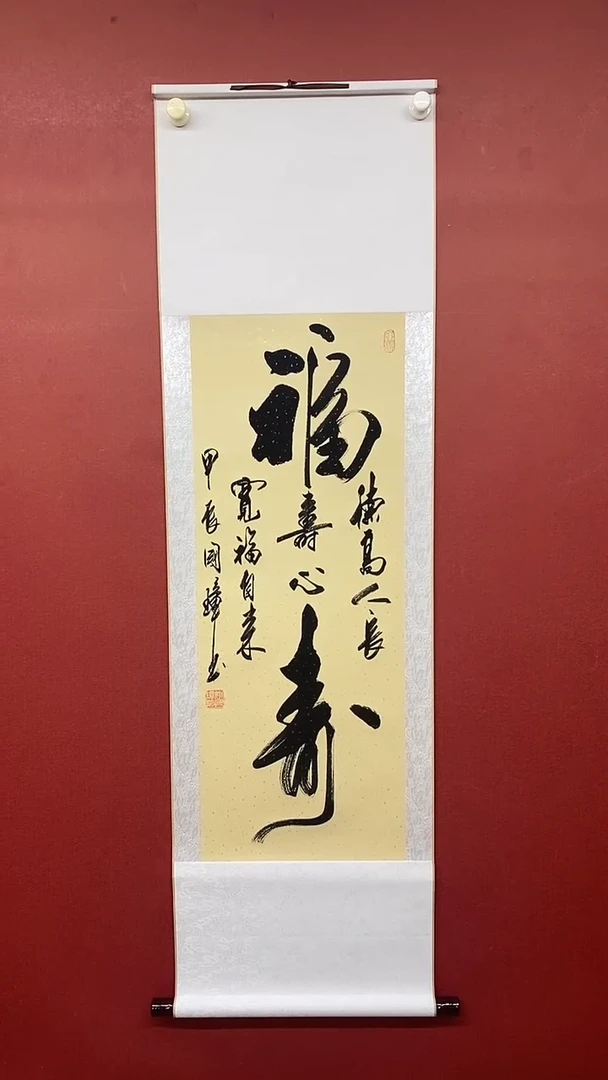 福
壽
德高人長
壽心
寬福自來
甲辰國璋書